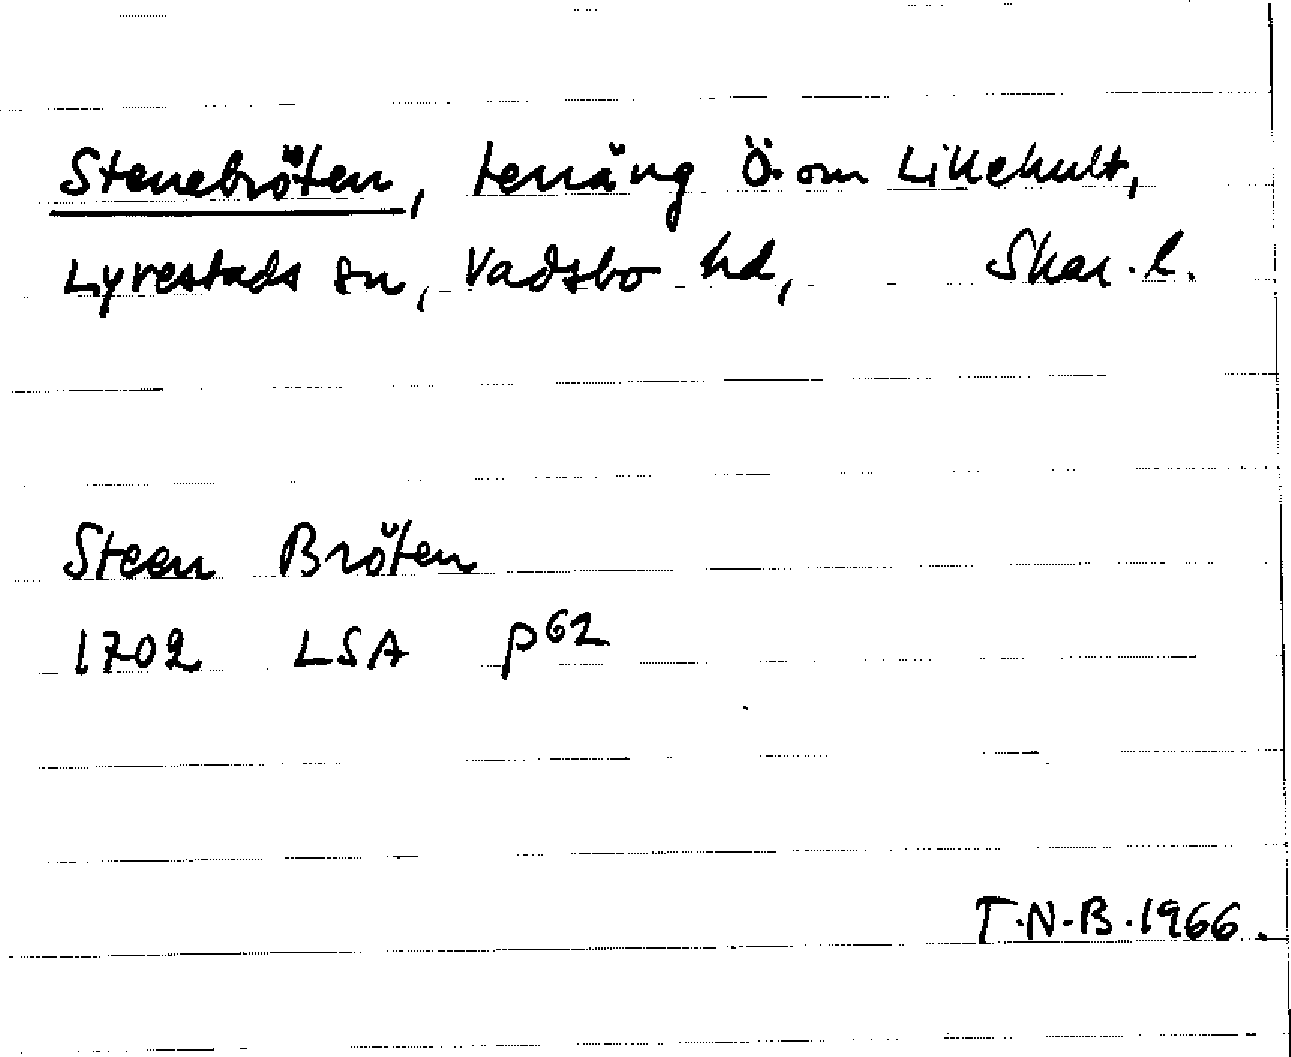 Stenebröten, terräng Ö. om Lillehult,
Lyrestads sn, Vadsbo hd, Skar. l.
Steen Bröten
1702 LSA P62
T.N.B. 1966.